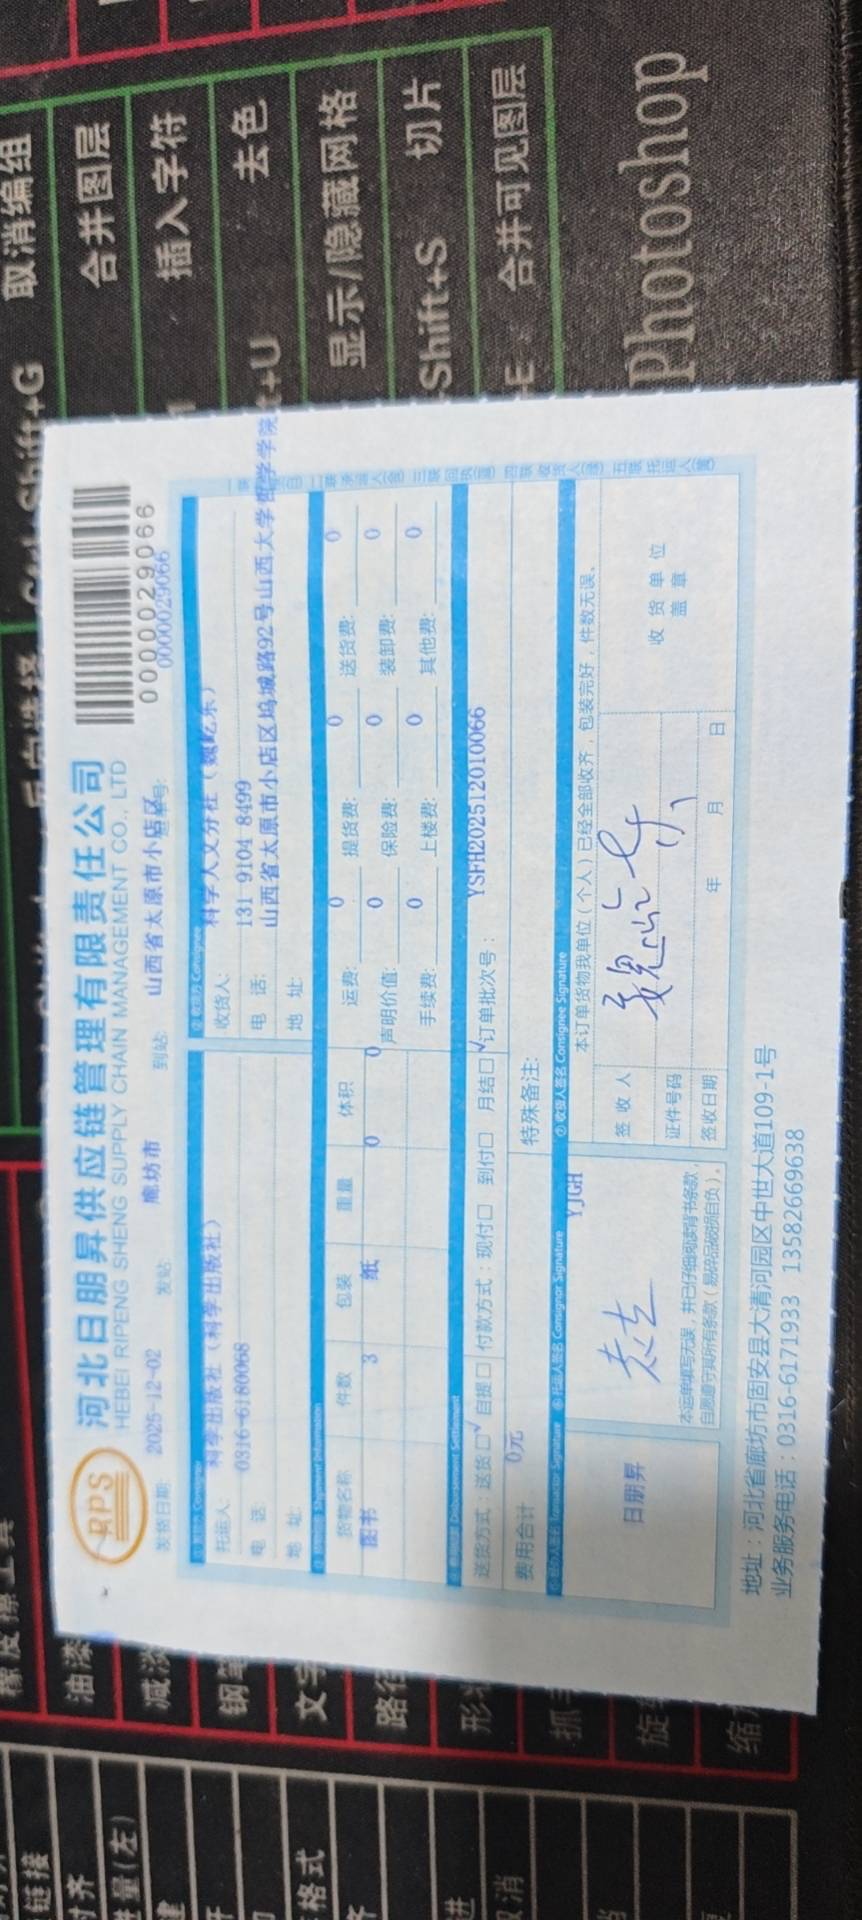 取消编组
合并图层
插入字符
去色
显示/隐藏网格
Shift+S 切片
合并可见图层
Photoshop
RPS
河北日朋昇供应链管理有限责任公司
HEBEI RIPENG SHENG SUPPLY CHAIN MANAGEMENT CO., LTD
0000029066
发货日期: 2025-12-02 发站: 廊坊市 到站: 山西省太原市小店区 0000029066
托运人: 科学出版社(科学出版社)
电 话: 0316-6180068
地 址:
② 收货方 Consignee
收货人: 科学人文分社
电 话: 131 9104 8499
地 址: 山西省太原市小店区坞城路92号山西大学
货物名称 件数 包装 重量 体积
图书 3 纸 0 0
运费: 0 提货费: 0 送货费: 0
声明价值: 0 保险费: 0 装卸费: 0
手续费: 0 上楼费: 0 其他费: 0
送货方式:送货☐√ 自提☐ 付款方式:现付☐ 到付☐ 月结☐√ 订单批次号: YSFH202512010066
费用合计 0元 特殊备注:
托运人签名 Consignor Signature YJGH
日朋昇
本运单填写无误,并已仔细阅读背书条款,
自愿遵守其所有条款(易碎品破损自负)。
⑦ 收货人签名 Consignee Signature
本订单货物我单位(个人)已经全部收齐,包装完好,件数无误。
签 收 人
证件号码
签收日期 年 月 日
收 货 单 位
盖 章
地址:河北省廊坊市固安县大清河园区中世大道109-1号
业务服务电话:0316-6171933 13582669638